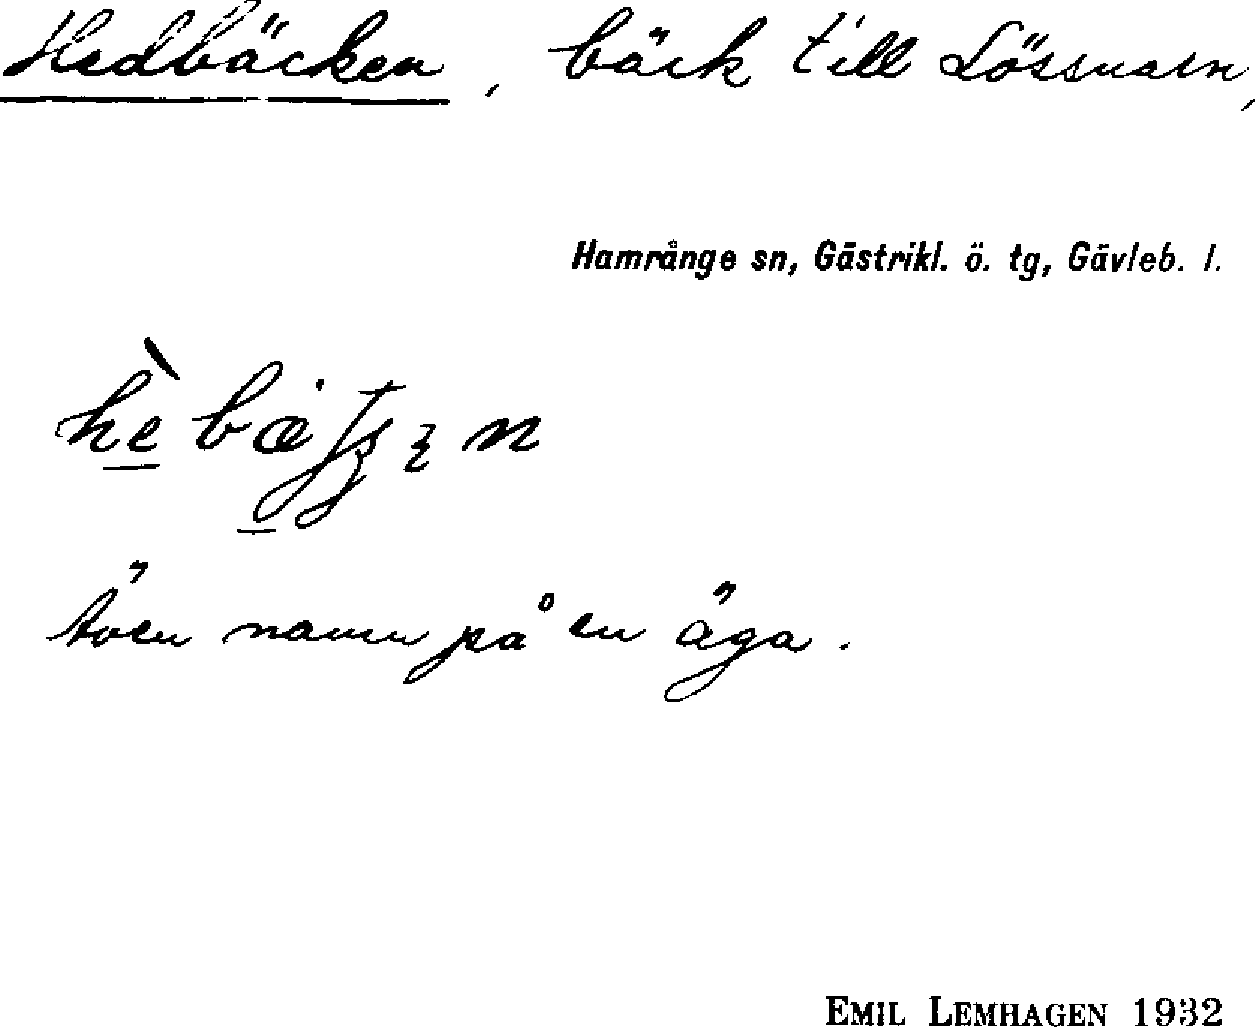 Hedbäcken, bäck till Lössnaren,
Hamrånge sn, Gästrikl. ö. tg, Gävleb. l.
Även namn på en äga.
EMIL LEMHAGEN 1932